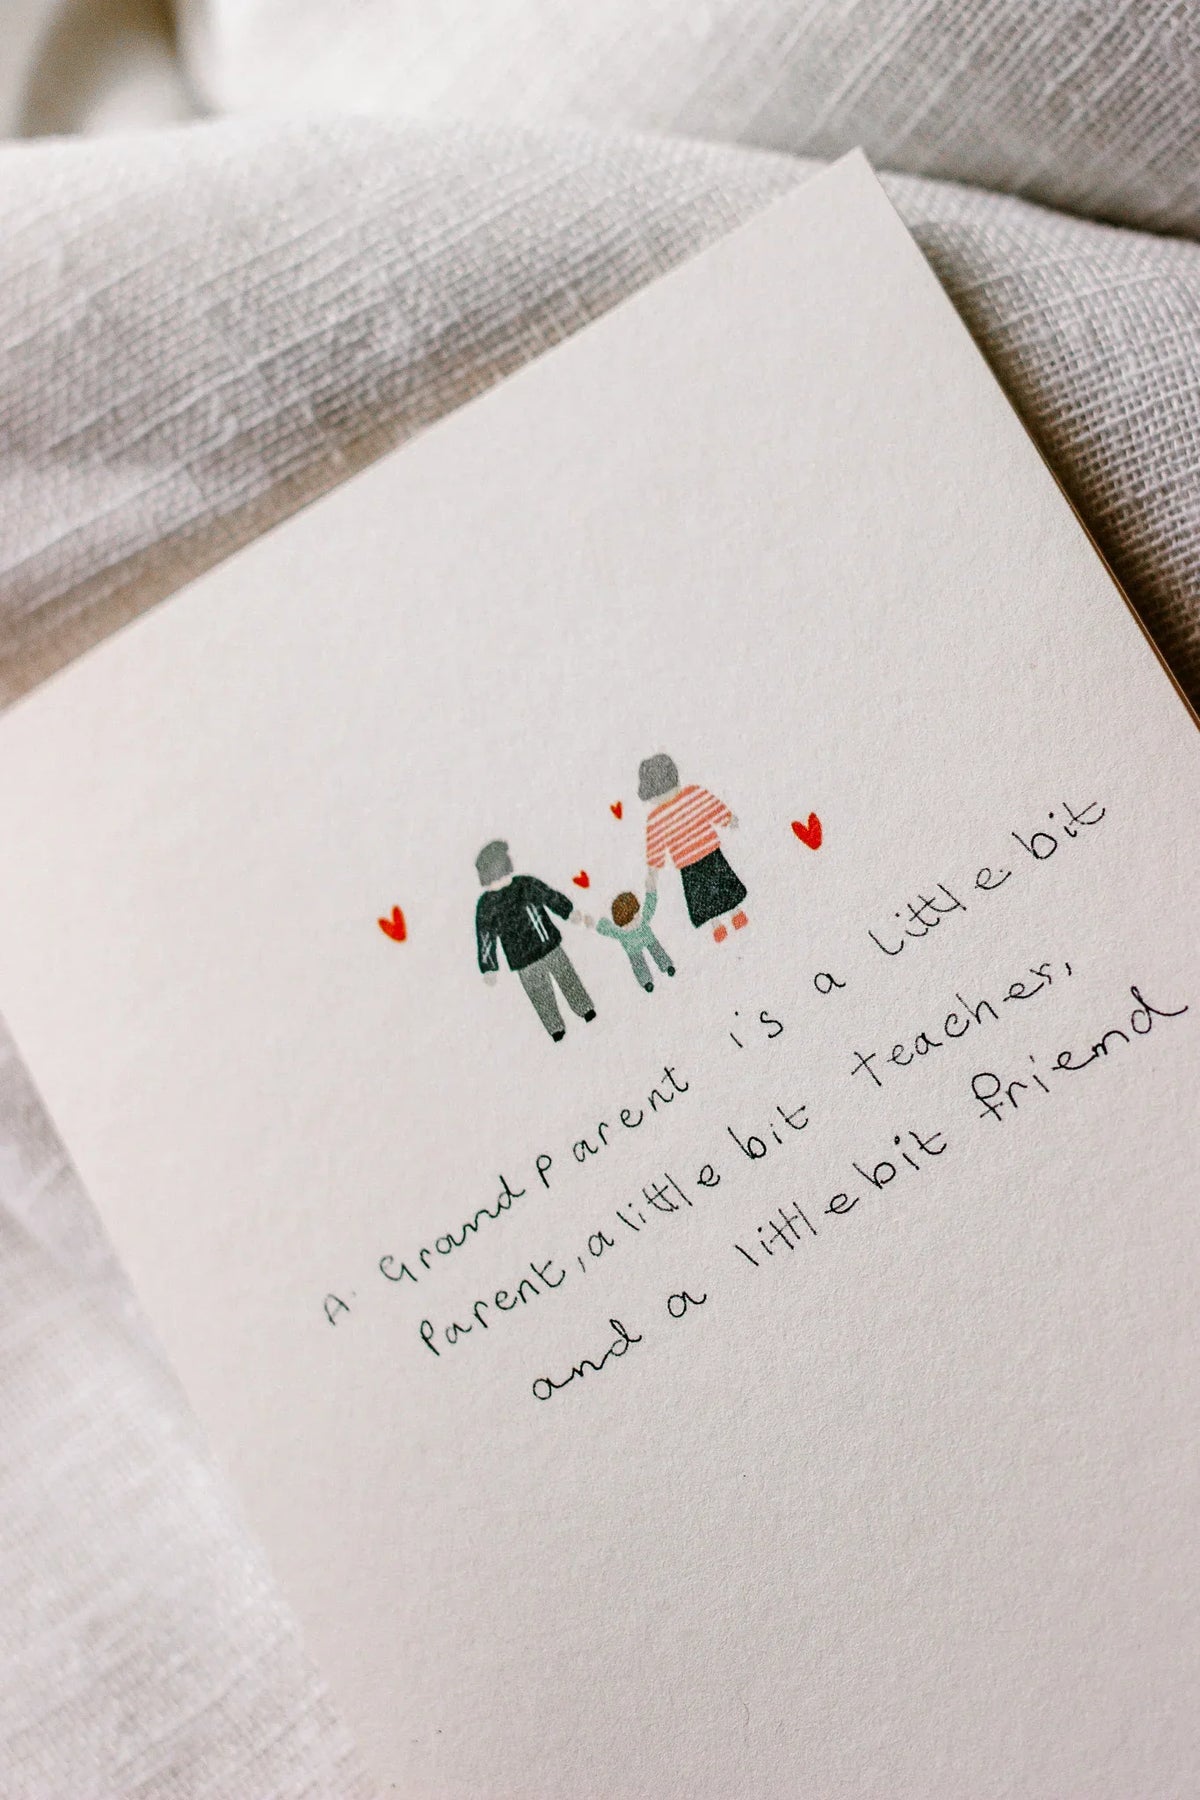 A Grandparent is a little bit
Parent, a little bit teacher,
and a little bit friend